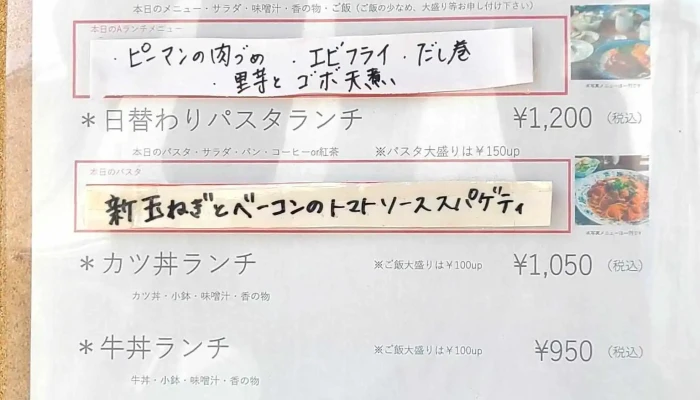 本日のメニュー・サラダ・味噌汁・香の物・ご飯（ご飯の少なめ、大盛り等お申し付け下さい）
本日のAランチメニュー
・ピーマンの肉づめ ・エビフライ・だし巻
・里芋とゴボ天煮い
＊日替わりパスタランチ ¥1,200（税込）
本日のパスタ・サラダ・パン・コーヒーor紅茶 ※パスタ大盛りは¥150up
本日のパスタ
新玉ねぎとベーコンのトマトソーススパゲティ
＊カツ丼ランチ ※ご飯大盛りは¥100up ¥1,050（税込）
カツ丼・小鉢・味噌汁・香の物
＊牛丼ランチ ※ご飯大盛りは¥100up ¥950（税込）
牛丼・小鉢・味噌汁・香の物